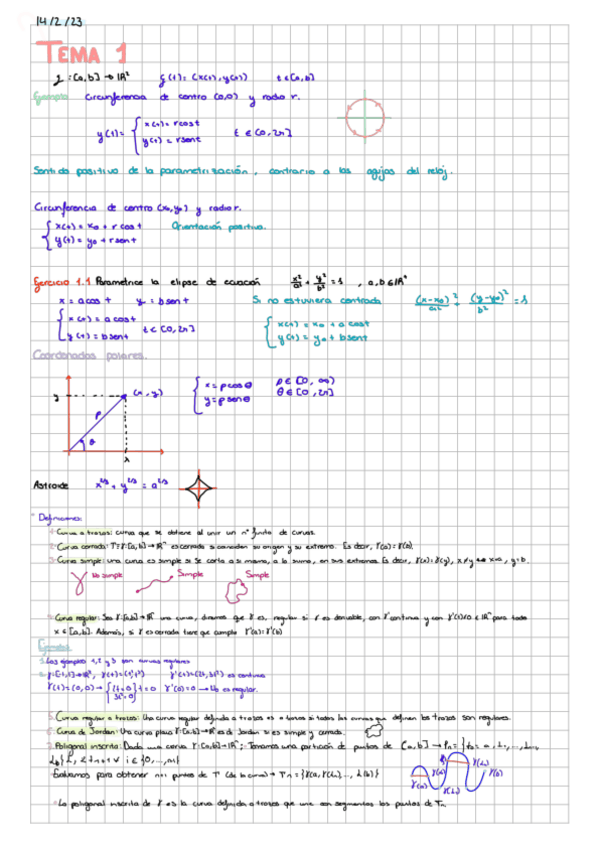 14/2/23
TEMA 1
γ: [a,b] → IR² γ(t) = (x(t), y(t)) t ∈ [a,b]
Ejemplo Circunferencia de centro (0,0) y radio r.
γ(t) = { x(t) = r cos t
y(t) = r sen t t ∈ [0, 2π]
Sentido positivo de la parametrización, contrario a las agujas del reloj.
Circunferencia de centro (x₀, y₀) y radio r.
x(t) = x₀ + r cos t Orientación positiva.
y(t) = y₀ + r sen t
Ejercicio 1.1 Parametrice la elipse de ecuación x²/a² + y²/b² = 1 , a, b ∈ IR⁺
x = a cos t y = b sen t Si no estuviera centrada (x-x₀)²/a² + (y-y₀)²/b² = 1
x(t) = a cos t
y(t) = b sen t t ∈ [0, 2π] x(t) = x₀ + a cos t
y(t) = y₀ + b sen t
Coordenadas polares.
y (x, y) x = ρ cos θ ρ ∈ [0, ∞)
ρ y = ρ sen θ θ ∈ [0, 2π]
θ
x
Astroide x^2/3 + y^2/3 = a^2/3
Definiciones:
1. Curva a trozos: curva que se obtiene al unir un nº finito de curvas.
2. Curva cerrada: γ:[a,b] → IRⁿ es cerrada si coinciden su origen y su extremo. Es decir, γ(a) = γ(b).
3. Curva simple: una curva es simple si se corta a si misma, a lo sumo, en sus extremos. Es decir, γ(x) = γ(y), x ≠ y ⇔ x = a, y = b.
No simple Simple Simple
4. Curva regular: Sea γ:[a,b] → IRⁿ una curva, diremos que γ es regular si γ es derivable, con γ' continua y con γ'(x) ≠ 0 ∈ IRⁿ para todo
x ∈ [a,b]. Además, si γ es cerrada tiene que cumplir γ'(a) = γ'(b)
Ejemplos
1. Los ejemplos 1, 2 y 3 son curvas regulares
2. γ:[-1,1] → IR², γ(t) = (t², t³) γ'(t) = (2t, 3t²) es continua
γ'(t) = (0,0) → { 2t = 0 } t = 0 γ'(0) = 0 → No es regular.
3t² = 0
5. Curva regular a trozos: Una curva regular definida a trozos es a trozos si todas las curvas que definen los trozos son regulares.
6. Curva de Jordan: Una curva plana γ:[a,b] → IR² es de Jordan si es simple y cerrada.
7. Poligonal inscrita: Dada una curva γ:[a,b] → IRⁿ; Tomamos una partición de puntos de [a,b] → Pn = {t₀ = a, t₁, ...,
Evaluamos para obtener n+1 puntos de γ (de la curva) → Tn = {γ(a), γ(t₁), ..., γ(b)}
γ(a) γ(t₁) γ(b)
La poligonal inscrita de γ es la curva definida a trozos que une con segmentos los puntos de Tn